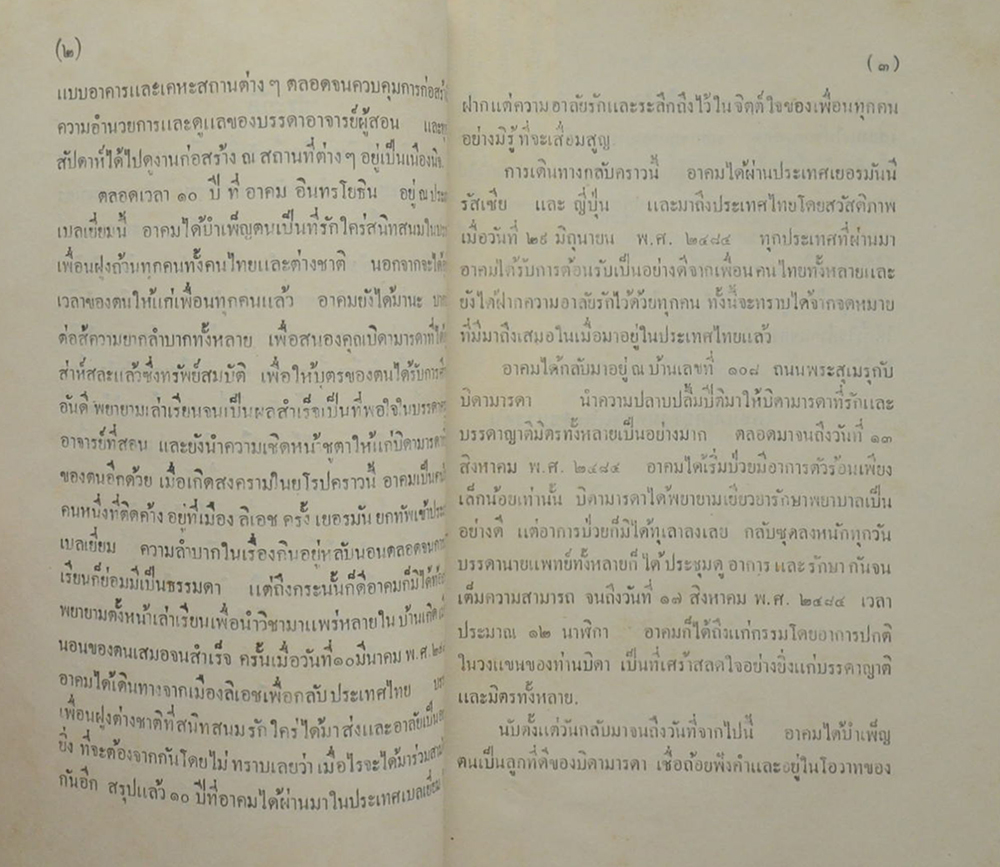 (๒)
แบบอาคารและเคหะสถานต่าง ๆ ตลอดจนควบคุมการก่อสร้
ความอำนวยการและดูแลของบรรดาอาจารย์ผู้สอน และทุ
สัปดาห์ได้ไปดูงานก่อสร้าง ณ สถานที่ต่าง ๆ อยู่เป็นเนืองนิจ
ตลอดเวลา ๑๐ ปี ที่ อาคม อินทรโยธิน อยู่ ณ ประ
เบลเยี่ยมนี้ อาคมได้บำเพ็ญตนเป็นที่รักใคร่สนิทสนมใน
เพื่อนฝูงถ้วนทุกคนทั้งคนไทยและต่างชาติ นอกจากจะได้
เวลาของตนให้แก่เพื่อนทุกคนแล้ว อาคมยังได้มานะ
ต่อสู้ความยากลำบากทั้งหลาย เพื่อสนองคุณบิดามารดาที่ได้
ส่าห์สละแล้วซึ่งทรัพย์สมบัติ เพื่อให้บุตรของตนได้รับการ
อันดี พยายามเล่าเรียนจนเป็นผลสำเร็จเป็นที่พอใจในบรรดา
อาจารย์ที่สอน และยังนำความเชิดหน้าชูตาให้แก่บิดามารดา
ของตนอีกด้วย เมื่อเกิดสงครามในยุโรปคราวนี้ อาคมเป็น
คนหนึ่งที่ติดค้าง อยู่ที่เมือง ลิเอช ครั้ง เยอรมัน ยกทัพเข้าประ
เบลเยี่ยม ความลำบากในเรื่องกินอยู่หลับนอนตลอดจน
เรียนก็ย่อมมีเป็นธรรมดา แต่ถึงกระนั้นก็ดีอาคมก็มิได้
พยายามตั้งหน้าเล่าเรียนเพื่อนำวิชามาแพร่หลายใน บ้านเกิด
นอนของตนเสมอจนสำเร็จ ครั้นเมื่อวันที่ ๑๐ มีนาคม พ.ศ.
อาคมได้เดินทางจากเมืองลิเอชเพื่อกลับประเทศไทย
เพื่อนฝูงต่างชาติที่สนิทสนม รักใคร่ ได้มาส่งและ อาลัยเป็น
ยิ่ง ที่จะต้องจากกันโดยไม่ ทราบเลยว่า เมื่อไรจะได้มาร่วม
กันอีก สรุปแล้ว ๑๐ ปีที่อาคมได้ผ่านมาในประเทศเบลเยี่ยม
(๓)
ฝากแต่ความอาลัยรักและระลึกถึงไว้ใน จิตต์ ใจของเพื่อนทุกคน
อย่างมิรู้ ที่จะเสื่อมสูญ
การเดินทางกลับคราวนี้ อาคมได้ผ่านประเทศเยอรมันนี
รัสเซีย และ ญี่ปุ่น และมาถึงประเทศไทยโดยสวัสดิภาพ
เมื่อวันที่ ๒๙ มิถุนายน พ.ศ. ๒๔๘๔ ทุกประเทศที่ผ่านมา
อาคมได้รับการต้อนรับเป็นอย่างดีจากเพื่อนคนไทยทั้งหลายและ
ยังได้ฝากความอาลัยรักไว้ด้วยทุกคน ทั้งนี้จะทราบได้จากจดหมาย
ที่มีมาถึงเสมอในเมื่อมาอยู่ในประเทศไทยแล้ว
อาคมได้กลับมาอยู่ ณ บ้านเลขที่ ๑๐๘ ถนนพระสุเมรุกับ
บิดามารดา นำความปลาบปลื้มปีติมาให้บิดามารดาที่รักและ
บรรดาญาติมิตรทั้งหลายเป็นอย่างมาก ตลอดมาจนถึงวันที่ ๑๓
สิงหาคม พ.ศ. ๒๔๘๔ อาคมได้เริ่มป่วยมีอาการตัวร้อนเพียง
เล็กน้อยเท่านั้น บิดามารดาได้พยายามเยียวยารักษาพยาบาลเป็น
อย่างดี แต่อาการป่วยก็มิได้ทุเลาลงเลย กลับซุดลงหนักทุกวัน
บรรดานายแพทย์ทั้งหลายก็ ได้ ประชุมดู อาการ และ รักษา กันจน
เต็มความสามารถ จนถึงวันที่ ๑๗ สิงหาคม พ.ศ. ๒๔๘๔ เวลา
ประมาณ ๑๒ นาฬิกา อาคมก็ได้ถึงแก่กรรมโดยอาการปกติ
ในวงแขนของท่านบิดา เป็นที่เศร้าสลดใจอย่างยิ่งแก่บรรดาญาติ
และมิตรทั้งหลาย.
นับตั้งแต่วันกลับมาจนถึงวันที่จากไปนี้ อาคมได้บำเพ็ญ
ตนเป็นลูกที่ดีของบิดามารดา เชื่อถ้อยฟังคำและอยู่ในโอวาทของ